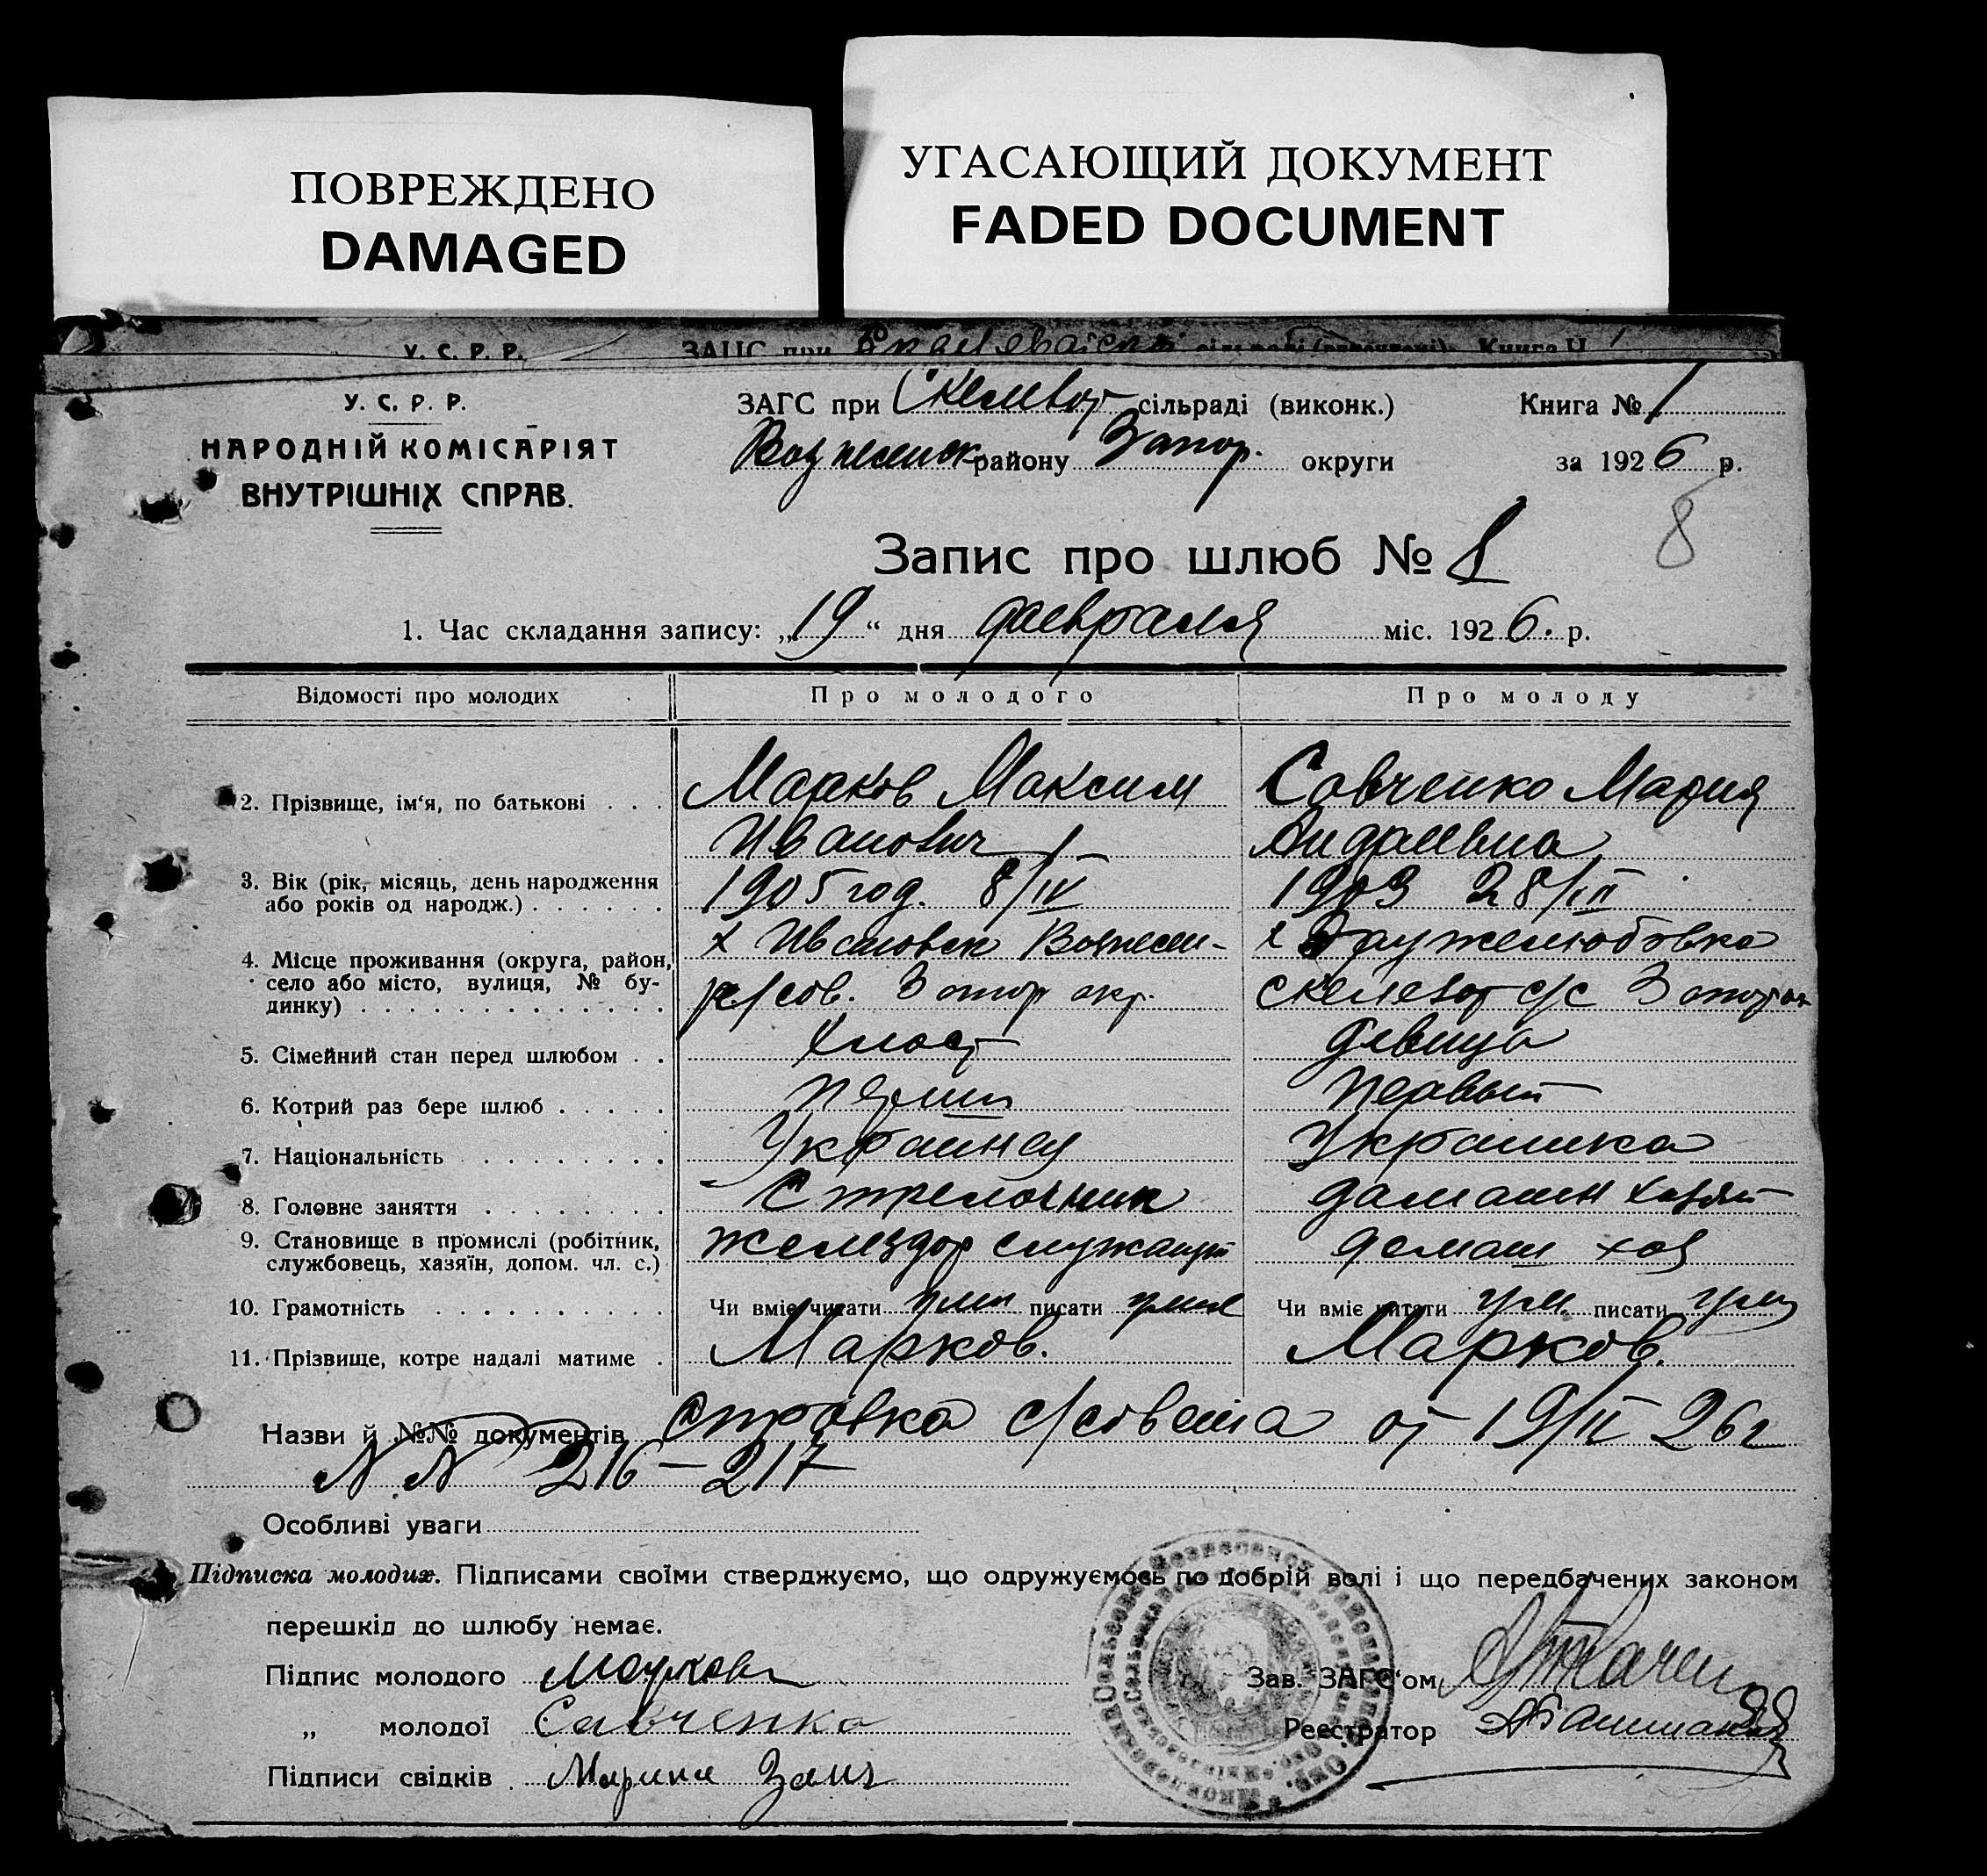 ПОВРЕЖДЕНО
DAMAGED
УГАСАЮЩИЙ ДОКУМЕНТ
FADED DOCUMENT
У. С. Р. Р. ЗАГС при Книга Ч.
У. С. Р. Р.
НАРОДНІЙ КОМІСАРІЯТ
ВНУТРІШНІХ СПРАВ.
ЗАГС при Скелеват сільраді (виконк.) Книга № 1
Вознесенск району Запор. округи за 1926 р.
8
Запис про шлюб № 8
1. Час складання запису: „19“ дня февраля міс. 1926. р.
Відомості про молодих Про молодого Про молоду
2. Прізвище, ім‘я, по батькові . . . Марков Максим Савченко Мария
Иванович Андреевна
3. Вік (рік, місяць, день народження або років од народж.) . . . . . . 1905 год. 8/IV 1903 28/III
4. Місце проживання (округа, район, село або місто, вулиця, № будинку) . . . . . . . . . . . . . х Ивановск Вознесен- х Дружелюбовка
р/сов. Запор окр. Скелеват с/с Запор ок
5. Сімейний стан перед шлюбом . . Холост девица
6. Котрий раз бере шлюб . . . . . первый
7. Національність . . . . . . . . Украинец Украинка
8. Головне заняття . . . . . . . . Стрелочник
9. Становище в промислі (робітник, службовець, хазяїн, допом. чл. с.) желездор служащий домаш хоз
10. Грамотність . . . . . . . . . . Чи вміє читати писати Чи вміє читати ум. писати
11. Прізвище, котре надалі матиме . Марков. Марков.
Назви й №№ документів Справка с/совета от 19/II 26 г
N N 216 – 217
Особливі уваги
Підписка молодих. Підписами своїми стверджуємо, що одружуємось по добрій волі і що передбачених законом
перешкід до шлюбу немає.
Підпис молодого Марков Зав. ЗАГС‘ом
„ молодої Савченко Реєстратор
Підписи свідків . Марина